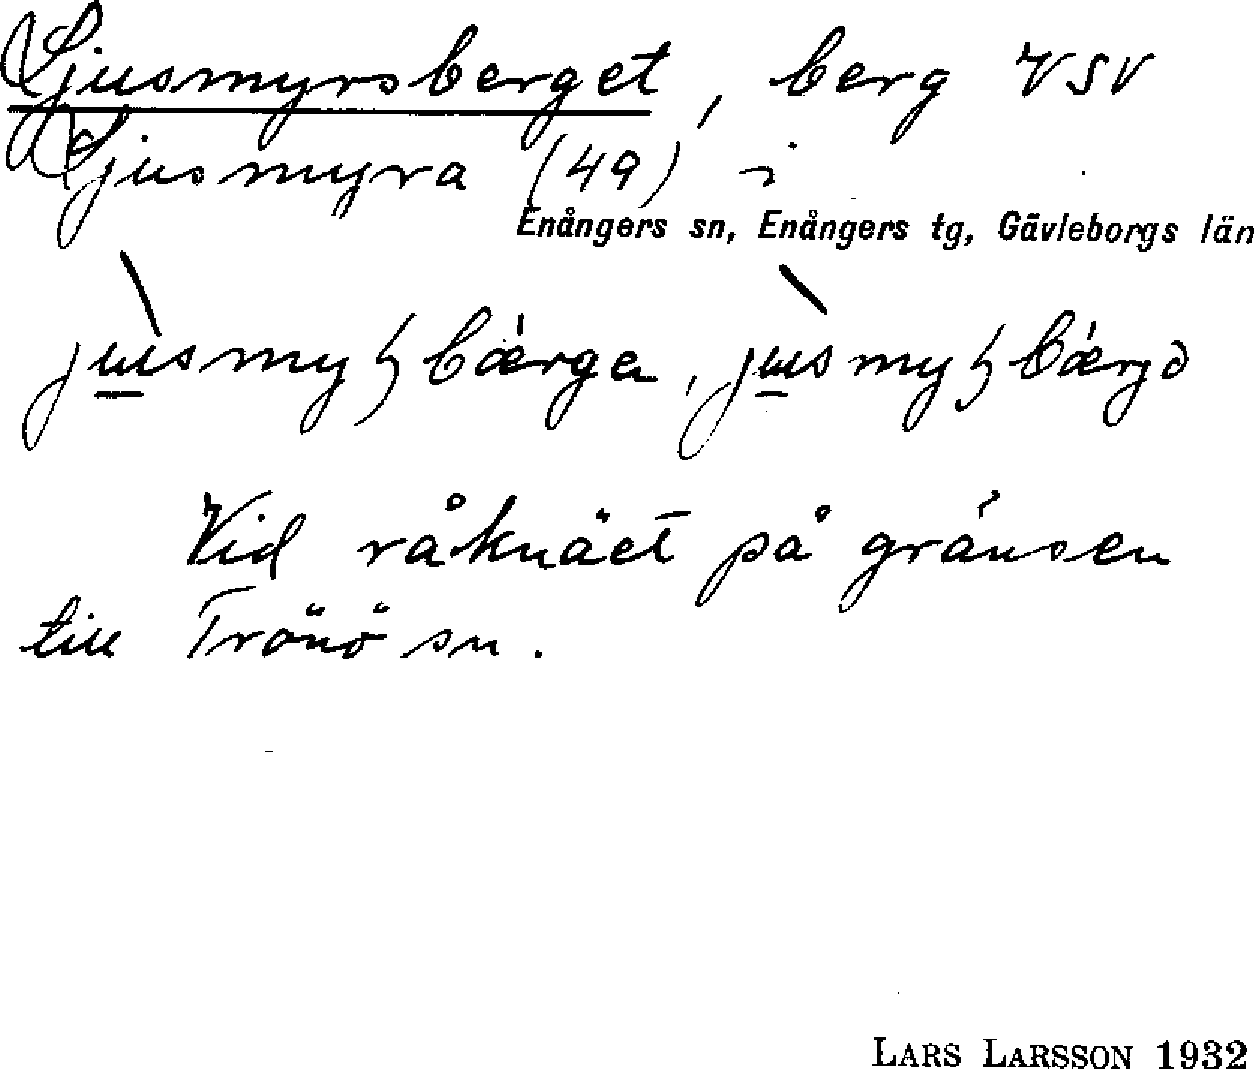 Ljusmyrsberget, berg VSV
Ljusmyra (49) i
Enångers sn, Enångers tg, Gävleborgs län
Vid råknäet på gränsen
till Trönö sn.
LARS LARSSON 1932